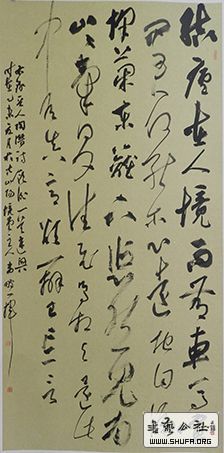 結廬在人境而無車馬
喧問君何能爾心遠地自偏
採菊東籬下悠然見南
山山氣日夕佳飛鳥相與還此
中有真意欲辯已忘言
詩人陶淵明詩飲酒一首
書藝公社
WWW.SHUFA.ORG